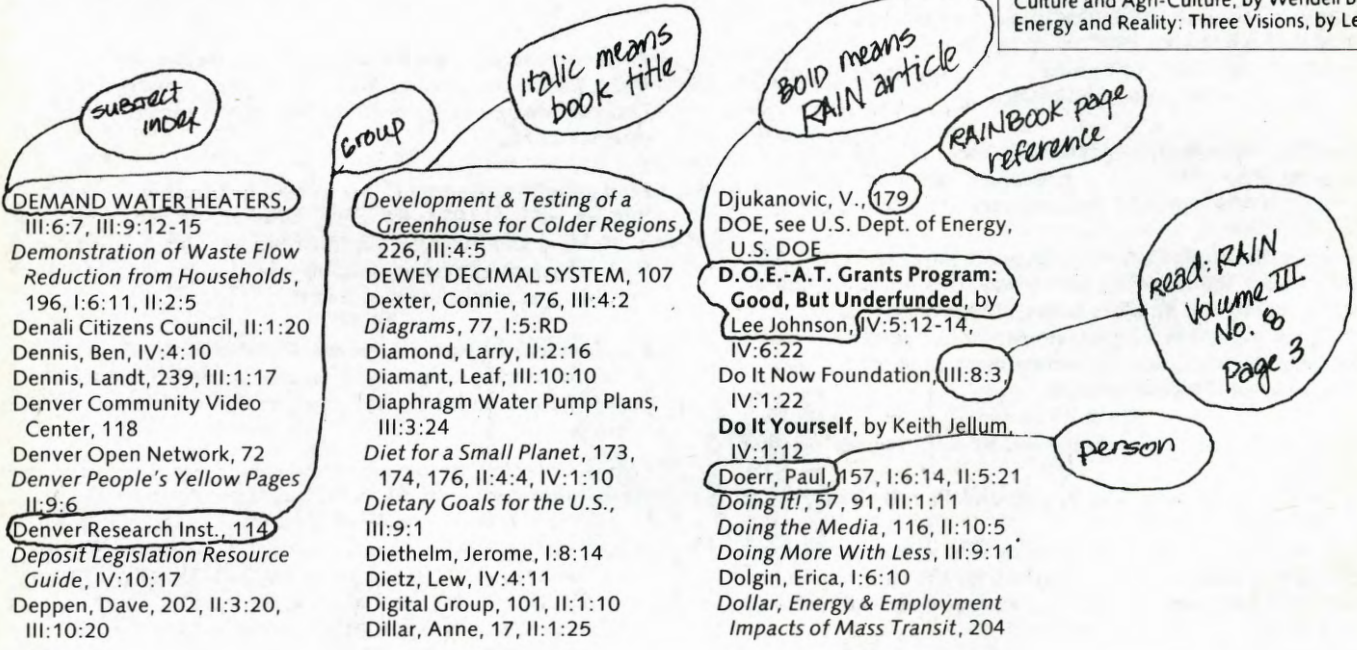 Culture and Agri-Culture, by Wendell B
Energy and Reality: Three Visions, by Le
subject
index
group
Italic means
book title
BOLD means
RAIN article
RAINBOOK page
reference
Read: RAIN
Volume III
No. 8
page 3
person
DEMAND WATER HEATERS,
III:6:7, III:9:12-15
Demonstration of Waste Flow
Reduction from Households,
196, I:6:11, II:2:5
Denali Citizens Council, II:1:20
Dennis, Ben, IV:4:10
Dennis, Landt, 239, III:1:17
Denver Community Video
Center, 118
Denver Open Network, 72
Denver People's Yellow Pages
II:9:6
Denver Research Inst., 114
Deposit Legislation Resource
Guide, IV:10:17
Deppen, Dave, 202, II:3:20,
III:10:20
Development & Testing of a
Greenhouse for Colder Regions,
226, III:4:5
DEWEY DECIMAL SYSTEM, 107
Dexter, Connie, 176, III:4:2
Diagrams, 77, I:5:RD
Diamond, Larry, II:2:16
Diamant, Leaf, III:10:10
Diaphragm Water Pump Plans,
III:3:24
Diet for a Small Planet, 173,
174, 176, II:4:4, IV:1:10
Dietary Goals for the U.S.,
III:9:1
Diethelm, Jerome, I:8:14
Dietz, Lew, IV:4:11
Digital Group, 101, II:1:10
Dillar, Anne, 17, II:1:25
Djukanovic, V., 179
DOE, see U.S. Dept. of Energy,
U.S. DOE
D.O.E.-A.T. Grants Program:
Good, But Underfunded, by
Lee Johnson, IV:5:12-14,
IV:6:22
Do It Now Foundation, III:8:3,
IV:1:22
Do It Yourself, by Keith Jellum.
IV:1:12
Doerr, Paul, 157, I:6:14, II:5:21
Doing It!, 57, 91, III:1:11
Doing the Media, 116, II:10:5
Doing More With Less, III:9:11
Dolgin, Erica, I:6:10
Dollar, Energy & Employment
Impacts of Mass Transit, 204